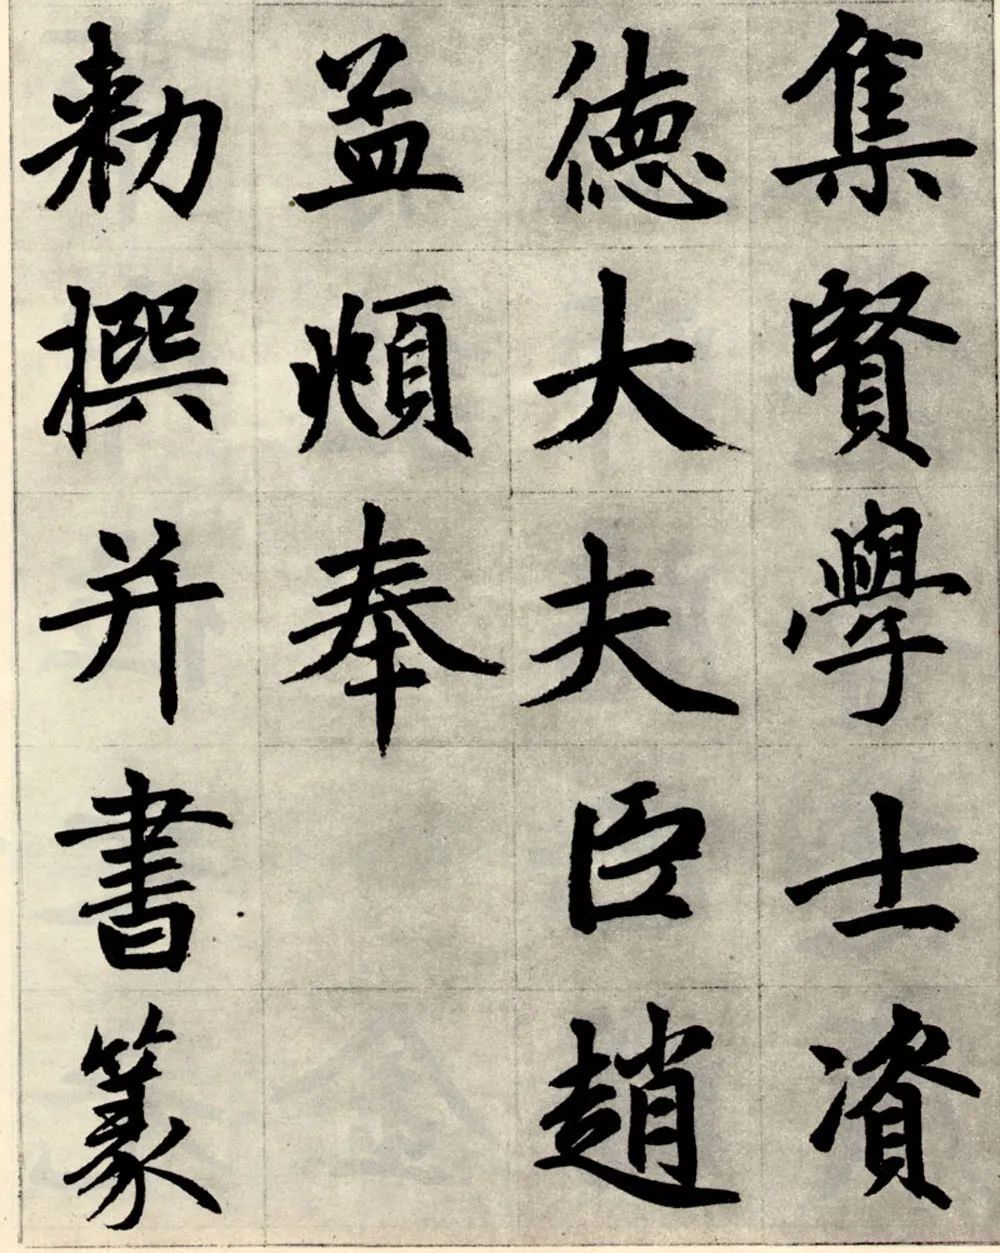 集賢學士資
德大夫臣趙
孟頫奉
勑撰并書篆